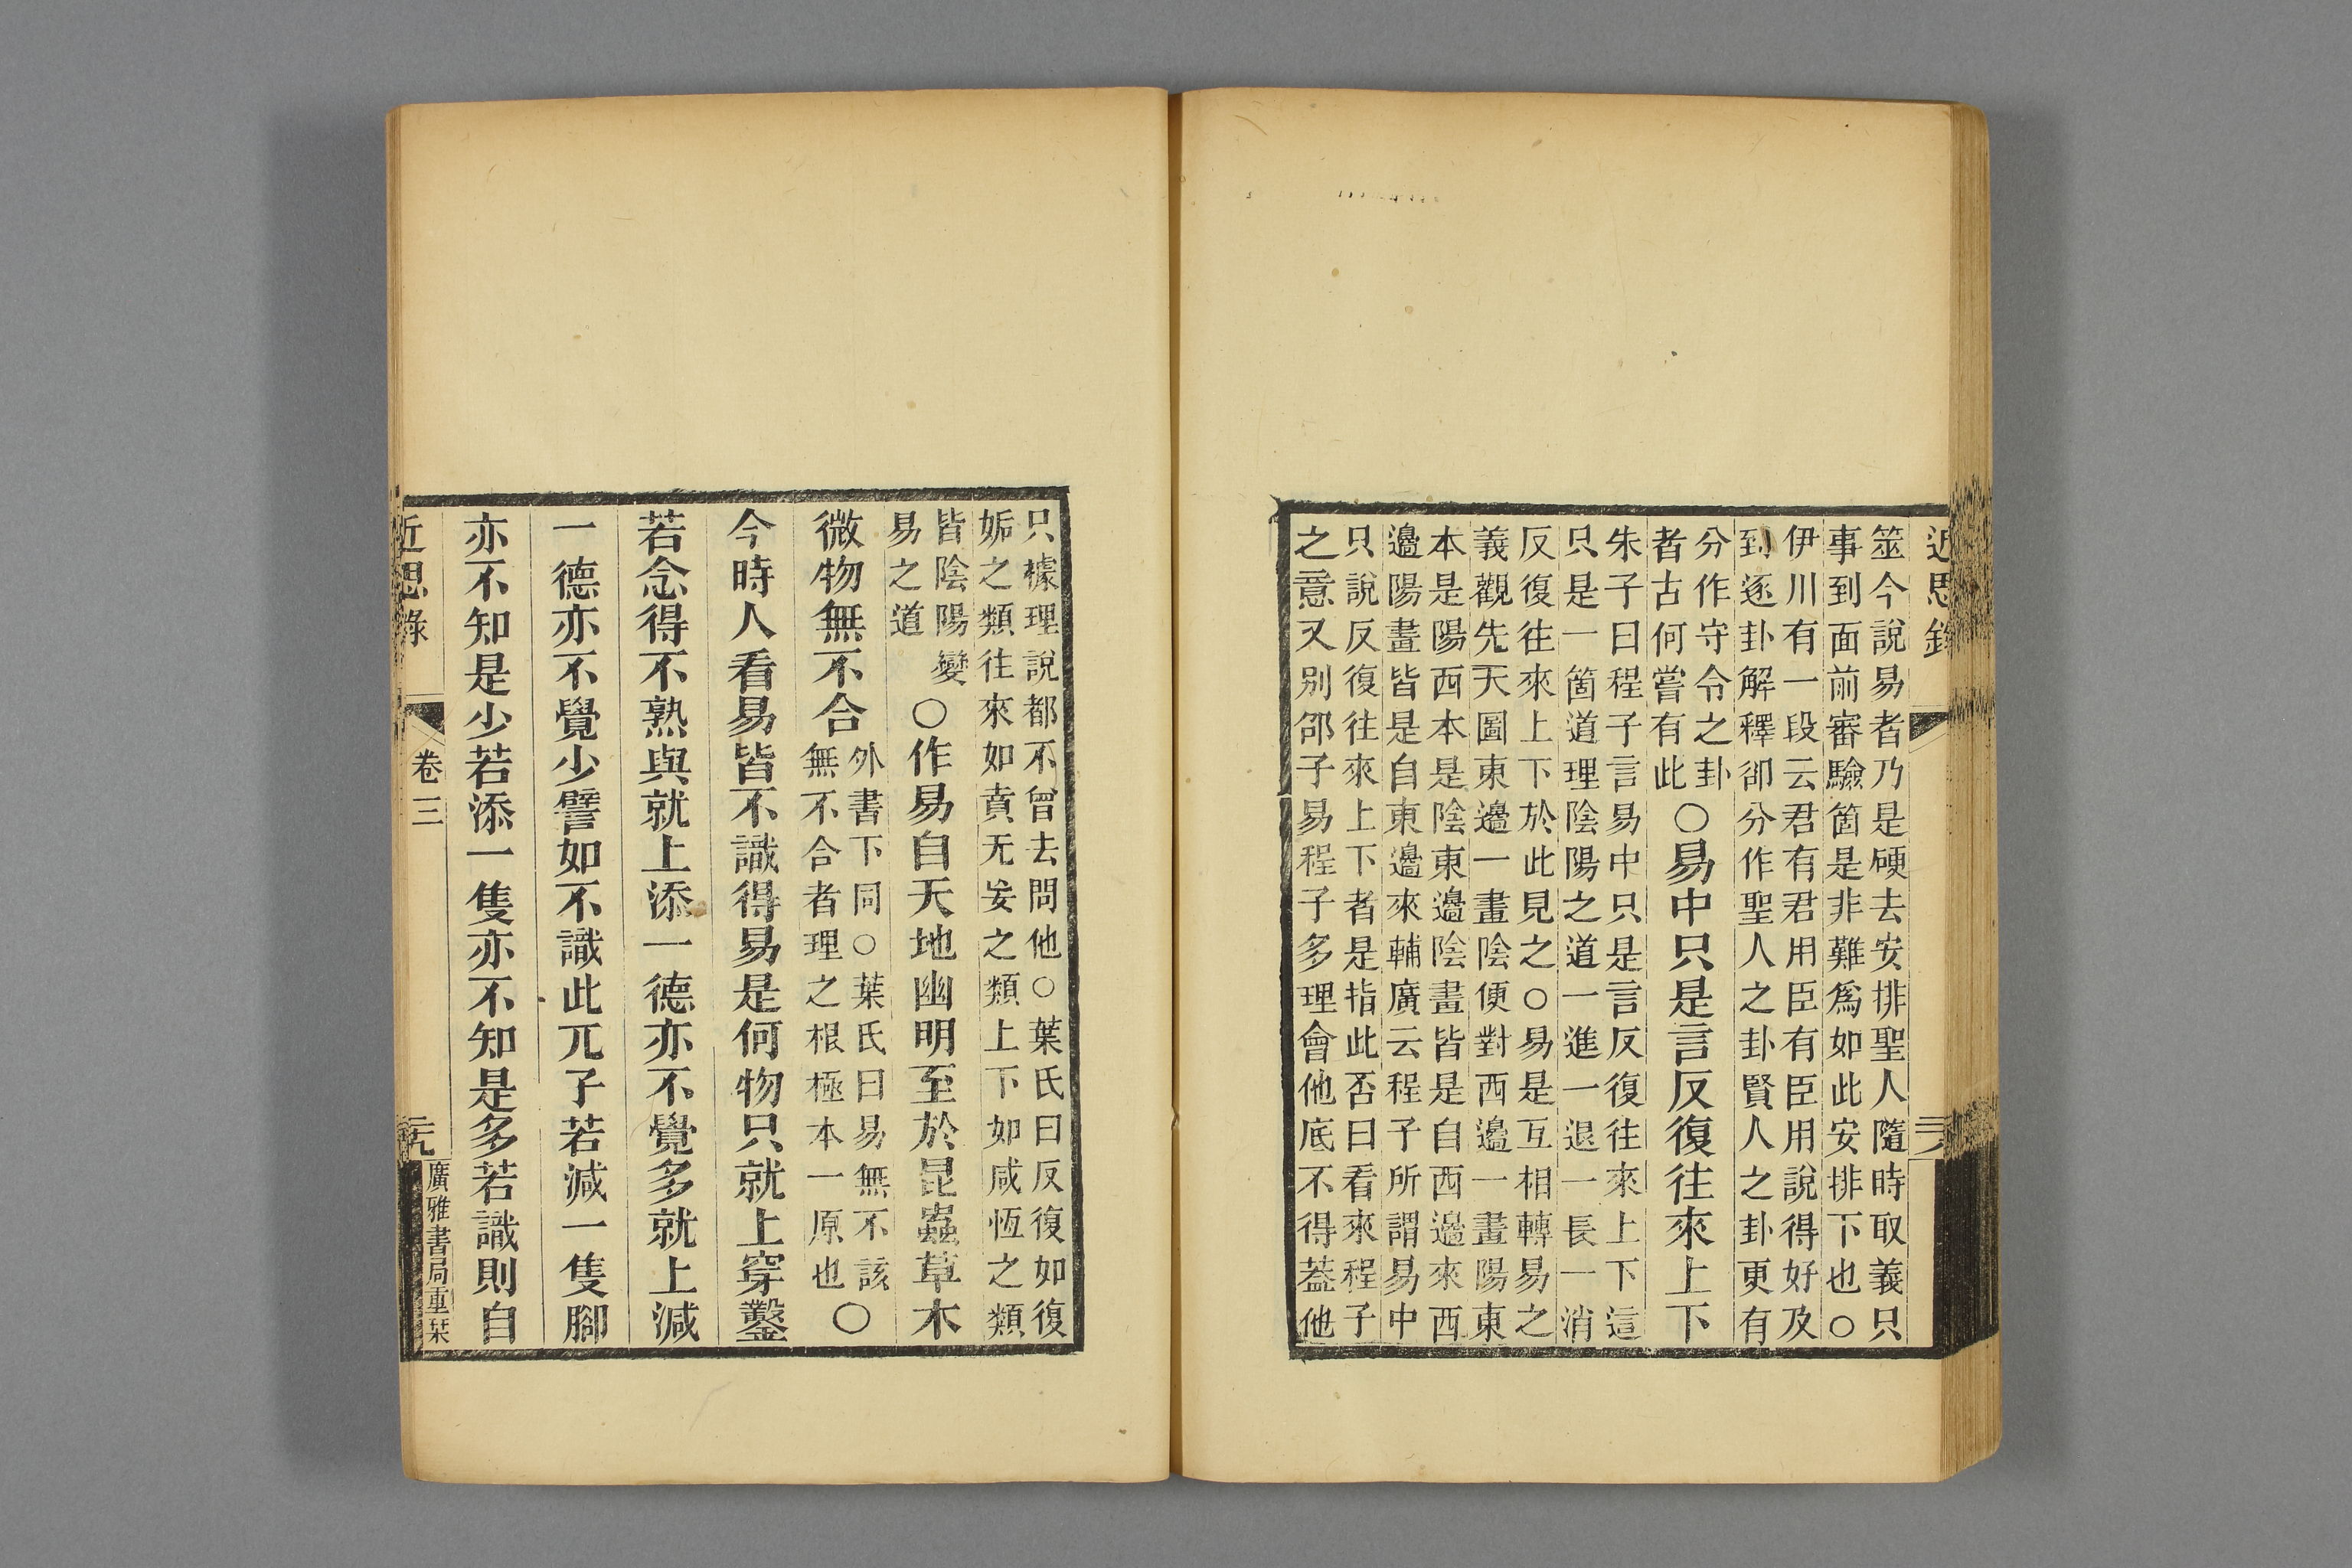 近思錄
筮今說易者乃是硬去安排聖人隨時取義只
事到面前審驗箇是非難爲如此安排下也○
伊川有一段云君有君用臣有臣用說得好及
到逐卦解釋卻分作聖人之卦賢人之卦更有
分作守令之卦
者古何嘗有此
○易中只是言反復往來上下
朱子曰程子言易中只是言反復往來上下這
只是一箇道理陰陽之道一進一退一長一消
反復往來上下於此見之○易是互相轉易之
義觀先天圖東邊一畫陰便對西邊一畫陽東
本是陽西本是陰東邊陰畫皆是自西邊來西
邊陽畫皆是自東邊來輔廣云程子所謂易中
只說反復往來上下者是指此否曰看來程子
之意又別邵子易程子多理會他底不得蓋他
只據理說都不曾去問他○葉氏曰反復如復
姤之類往來如賁无妄之類上下如咸恆之類
皆陰陽變
易之道
○作易自天地幽明至於昆蟲草木
微物無不合
外書下同○葉氏曰易無不該
無不合者理之根極本一原也
○
今時人看易皆不識得易是何物只就上穿鑿
若念得不熟與就上添一德亦不覺多就上減
一德亦不覺少譬如不識此兀子若減一隻腳
亦不知是少若添一隻亦不知是多若識則自
近思錄
卷三
元
廣雅書局重栞